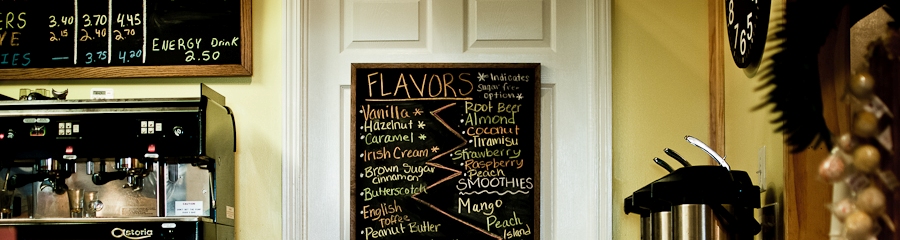 ERS 3.40 3.70 4.45
VE 2.15 2.40 2.70
IES — 3.75 4.20
ENERGY Drink
2.50
FLAVORS
*Indicates
Sugar free
option*
•Vanilla *
•Hazelnut *
•Caramel *
•Irish Cream *
•Brown Sugar
cinnamon
•Butterscotch
•English
Toffee
•Peanut Butter
•Root Beer
•Almond
•Coconut
•Tiramisu
•Strawberry
•Raspberry
•Peach
SMOOTHIES
Mango
Peach
Island
astoria
8
7
6
5